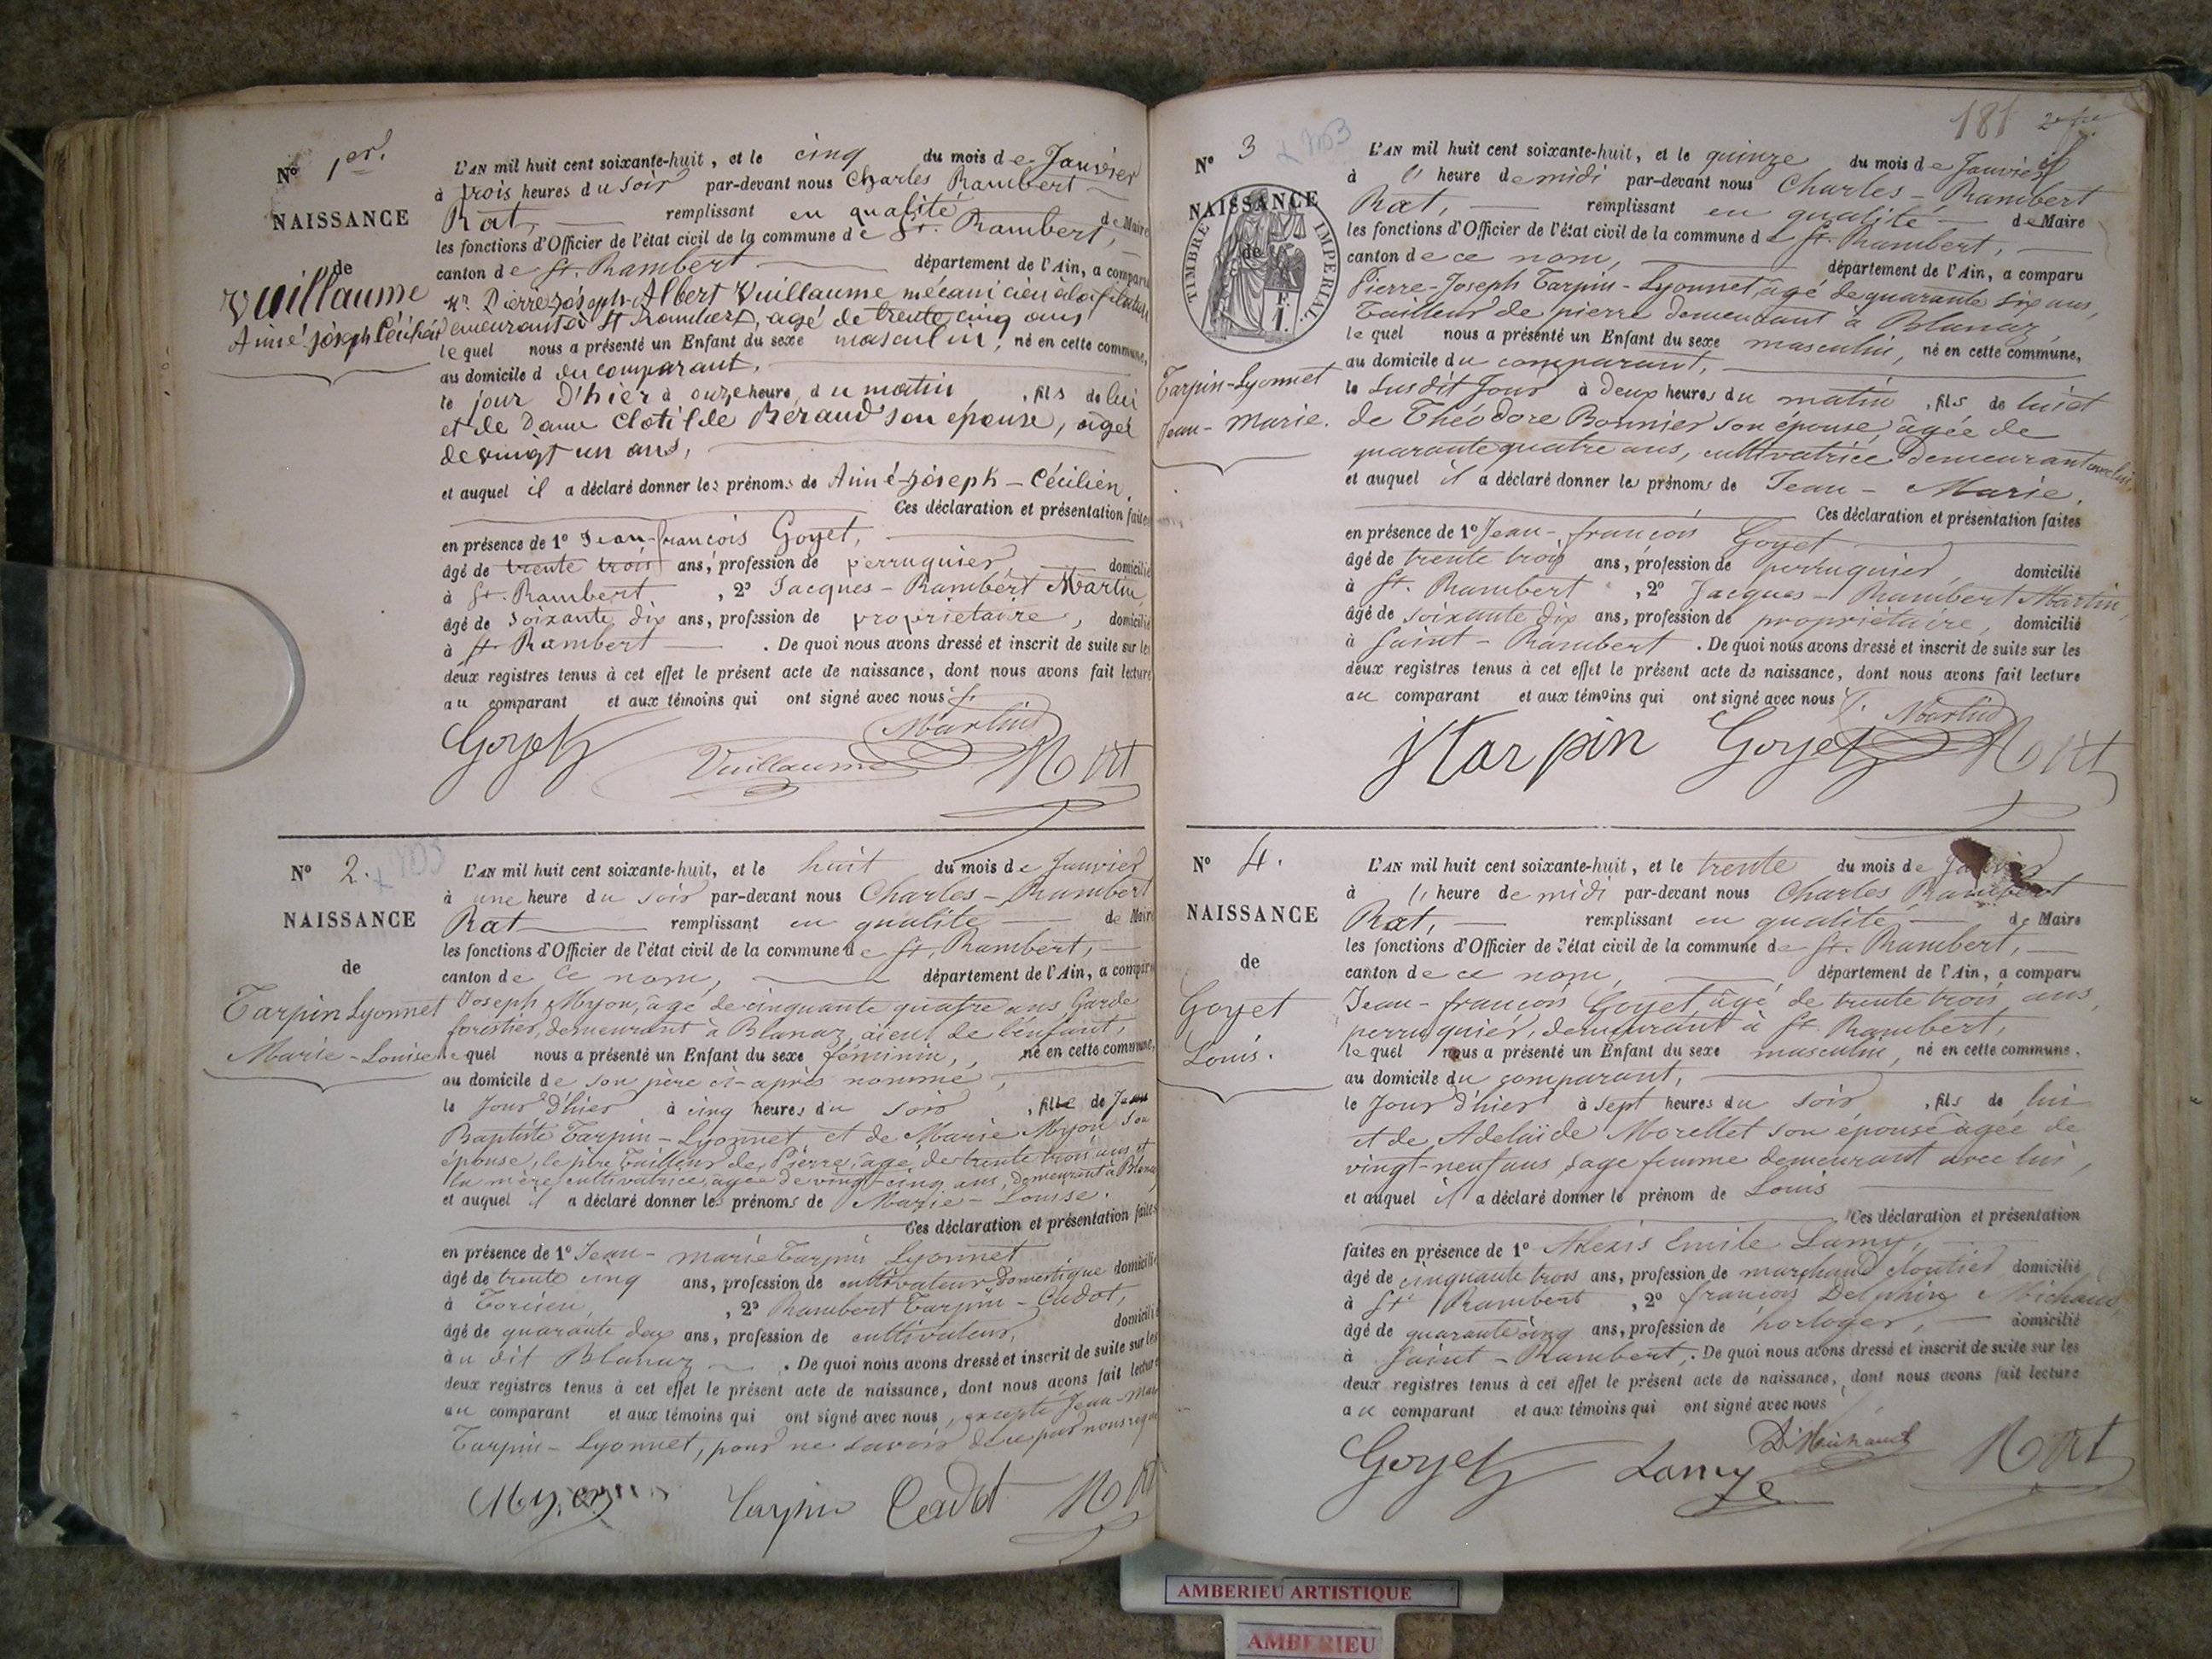 N° 1er.
NAISSANCE
de
Vuillaume
Aimé-Joseph Cécilien
L'AN mil huit cent soixante-huit, et le cinq du mois de Janvier
à trois heures du soir par-devant nous Charles Rambert
Rat, remplissant en qualité de Maire
les fonctions d'Officier de l'état civil de la commune de St. Rambert,
canton de St. Rambert département de l'Ain, a comparu
Mr. Pierre-Joseph-Albert Vuillaume mécanicien à la
demeurant à St Rambert, agé de trente cinq ans
le quel nous a présenté un Enfant du sexe masculin, né en cette commune,
au domicile d du comparant,
le jour d'hier à onze heure du matin, fils de lui
et de Dame Clotilde Béraud son epouse, agée
de vingt un ans,
et auquel il a déclaré donner les prénoms de Aimé-Joseph-Cécilien.
Ces déclaration et présentation faites
en présence de 1° Jean-françois Goyet,
âgé de trente trois ans, profession de perruquier, domicilié
à St. Rambert, 2° Jacques-Rambert Martin,
âgé de soixante dix ans, profession de propriétaire, domicilié
à St Rambert. De quoi nous avons dressé et inscrit de suite sur les
deux registres tenus à cet effet le présent acte de naissance, dont nous avons fait lecture
au comparant et aux témoins qui ont signé avec nous
Goyet Vuillaume Martin Rat
N° 2.
NAISSANCE
de
Tarpin Lyonnet
Marie-Louise
L'AN mil huit cent soixante-huit, et le huit du mois de Janvier
à une heure du soir par-devant nous Charles-Rambert
Rat remplissant en qualité de Maire
les fonctions d'Officier de l'état civil de la commune de St. Rambert,
canton de ce nom, département de l'Ain, a comparu
Joseph Myon, âgé de cinquante quatre ans Garde
forestier, demeurant à Blanaz, aïeul de l'enfant,
le quel nous a présenté un Enfant du sexe féminin, né en cette commune,
au domicile de son père ci-après nommé,
le Jour d'hier à cinq heures du soir, fille de Jean
Baptiste Tarpin-Lyonnet et de Marie Myon son
épouse, le père Tailleur de Pierre, âgé de trente trois ans et
la mère cultivatrice, agée de vingt-cinq ans, demeurant à Blanaz
et auquel il a déclaré donner les prénoms de Marie-Louise.
Ces déclaration et présentation faites
en présence de 1° Jean-marie Tarpin Lyonnet
âgé de trente cinq ans, profession de cultivateur domestique domicilié
à Torcieu, 2° Rambert Tarpin-Cadot,
âgé de quarante deux ans, profession de cultivateur, domicilié
à u dit Blanaz. De quoi nous avons dressé et inscrit de suite sur les
deux registres tenus à cet effet le présent acte de naissance, dont nous avons fait lecture
au comparant et aux témoins qui ont signé avec nous, excepté Jean-Marie
Tarpin-Lyonnet, pour ne savoir de ce par nous requis
Myon Tarpin Cadot Rat
181
N° 3
NAISSANCE
de
TIMBRE IMPERIAL
Tarpin-Lyonnet
Jean-Marie.
L'AN mil huit cent soixante-huit, et le quinze du mois de Janvier
à heure de midi par-devant nous Charles-Rambert
Rat, remplissant en qualité de Maire
les fonctions d'Officier de l'état civil de la commune de St. Rambert,
canton de ce nom, département de l'Ain, a comparu
Pierre-Joseph Tarpin-Lyonnet, âgé de quarante six ans,
Tailleur de pierre demeurant à Blanaz,
le quel nous a présenté un Enfant du sexe masculin, né en cette commune,
au domicile du comparant,
le susdit Jour à deux heures du matin, fils de lui et
de Théodore Bonnier son épouse, âgée de
quarante quatre ans, cultivatrice demeurant avec lui
et auquel il a déclaré donner les prénoms de Jean-Marie.
Ces déclaration et présentation faites
en présence de 1° Jean-françois Goyet
âgé de trente trois ans, profession de perruquier, domicilié
à St. Rambert, 2° Jacques-Rambert Martin,
âgé de soixante dix ans, profession de propriétaire, domicilié
à Saint-Rambert. De quoi nous avons dressé et inscrit de suite sur les
deux registres tenus à cet effet le présent acte de naissance, dont nous avons fait lecture
au comparant et aux témoins qui ont signé avec nous
Tarpin Goyet Martin Rat
N° 4.
NAISSANCE
de
Goyet
Louis.
L'AN mil huit cent soixante-huit, et le trente du mois de Janvier
à heure de midi par-devant nous Charles Rambert
Rat, remplissant en qualité de Maire
les fonctions d'Officier de l'état civil de la commune de St. Rambert,
canton de ce nom, département de l'Ain, a comparu
Jean-françois Goyet âgé de trente trois ans,
perruquier, demeurant à St. Rambert,
le quel nous a présenté un Enfant du sexe masculin, né en cette commune.
au domicile du comparant,
le Jour d'hier à sept heures du soir, fils de lui
et de Adelaïde Morellet son épouse âgée de
vingt-neuf ans sage femme demeurant avec lui,
et auquel il a déclaré donner le prénom de Louis
Ces déclaration et présentation
faites en présence de 1° Alexis Emile Lamy,
âgé de cinquante trois ans, profession de marchand cloutier domicilié
à St Rambert, 2° françois Delphin Michaud,
âgé de quarante cinq ans, profession de horloger, domicilié
à Saint-Rambert. De quoi nous avons dressé et inscrit de suite sur les
deux registres tenus à cet effet le présent acte de naissance, dont nous avons fait lecture
au comparant et aux témoins qui ont signé avec nous
Goyet Lamy D. Michaud Rat
AMBERIEU ARTISTIQUE
AMBERIEU